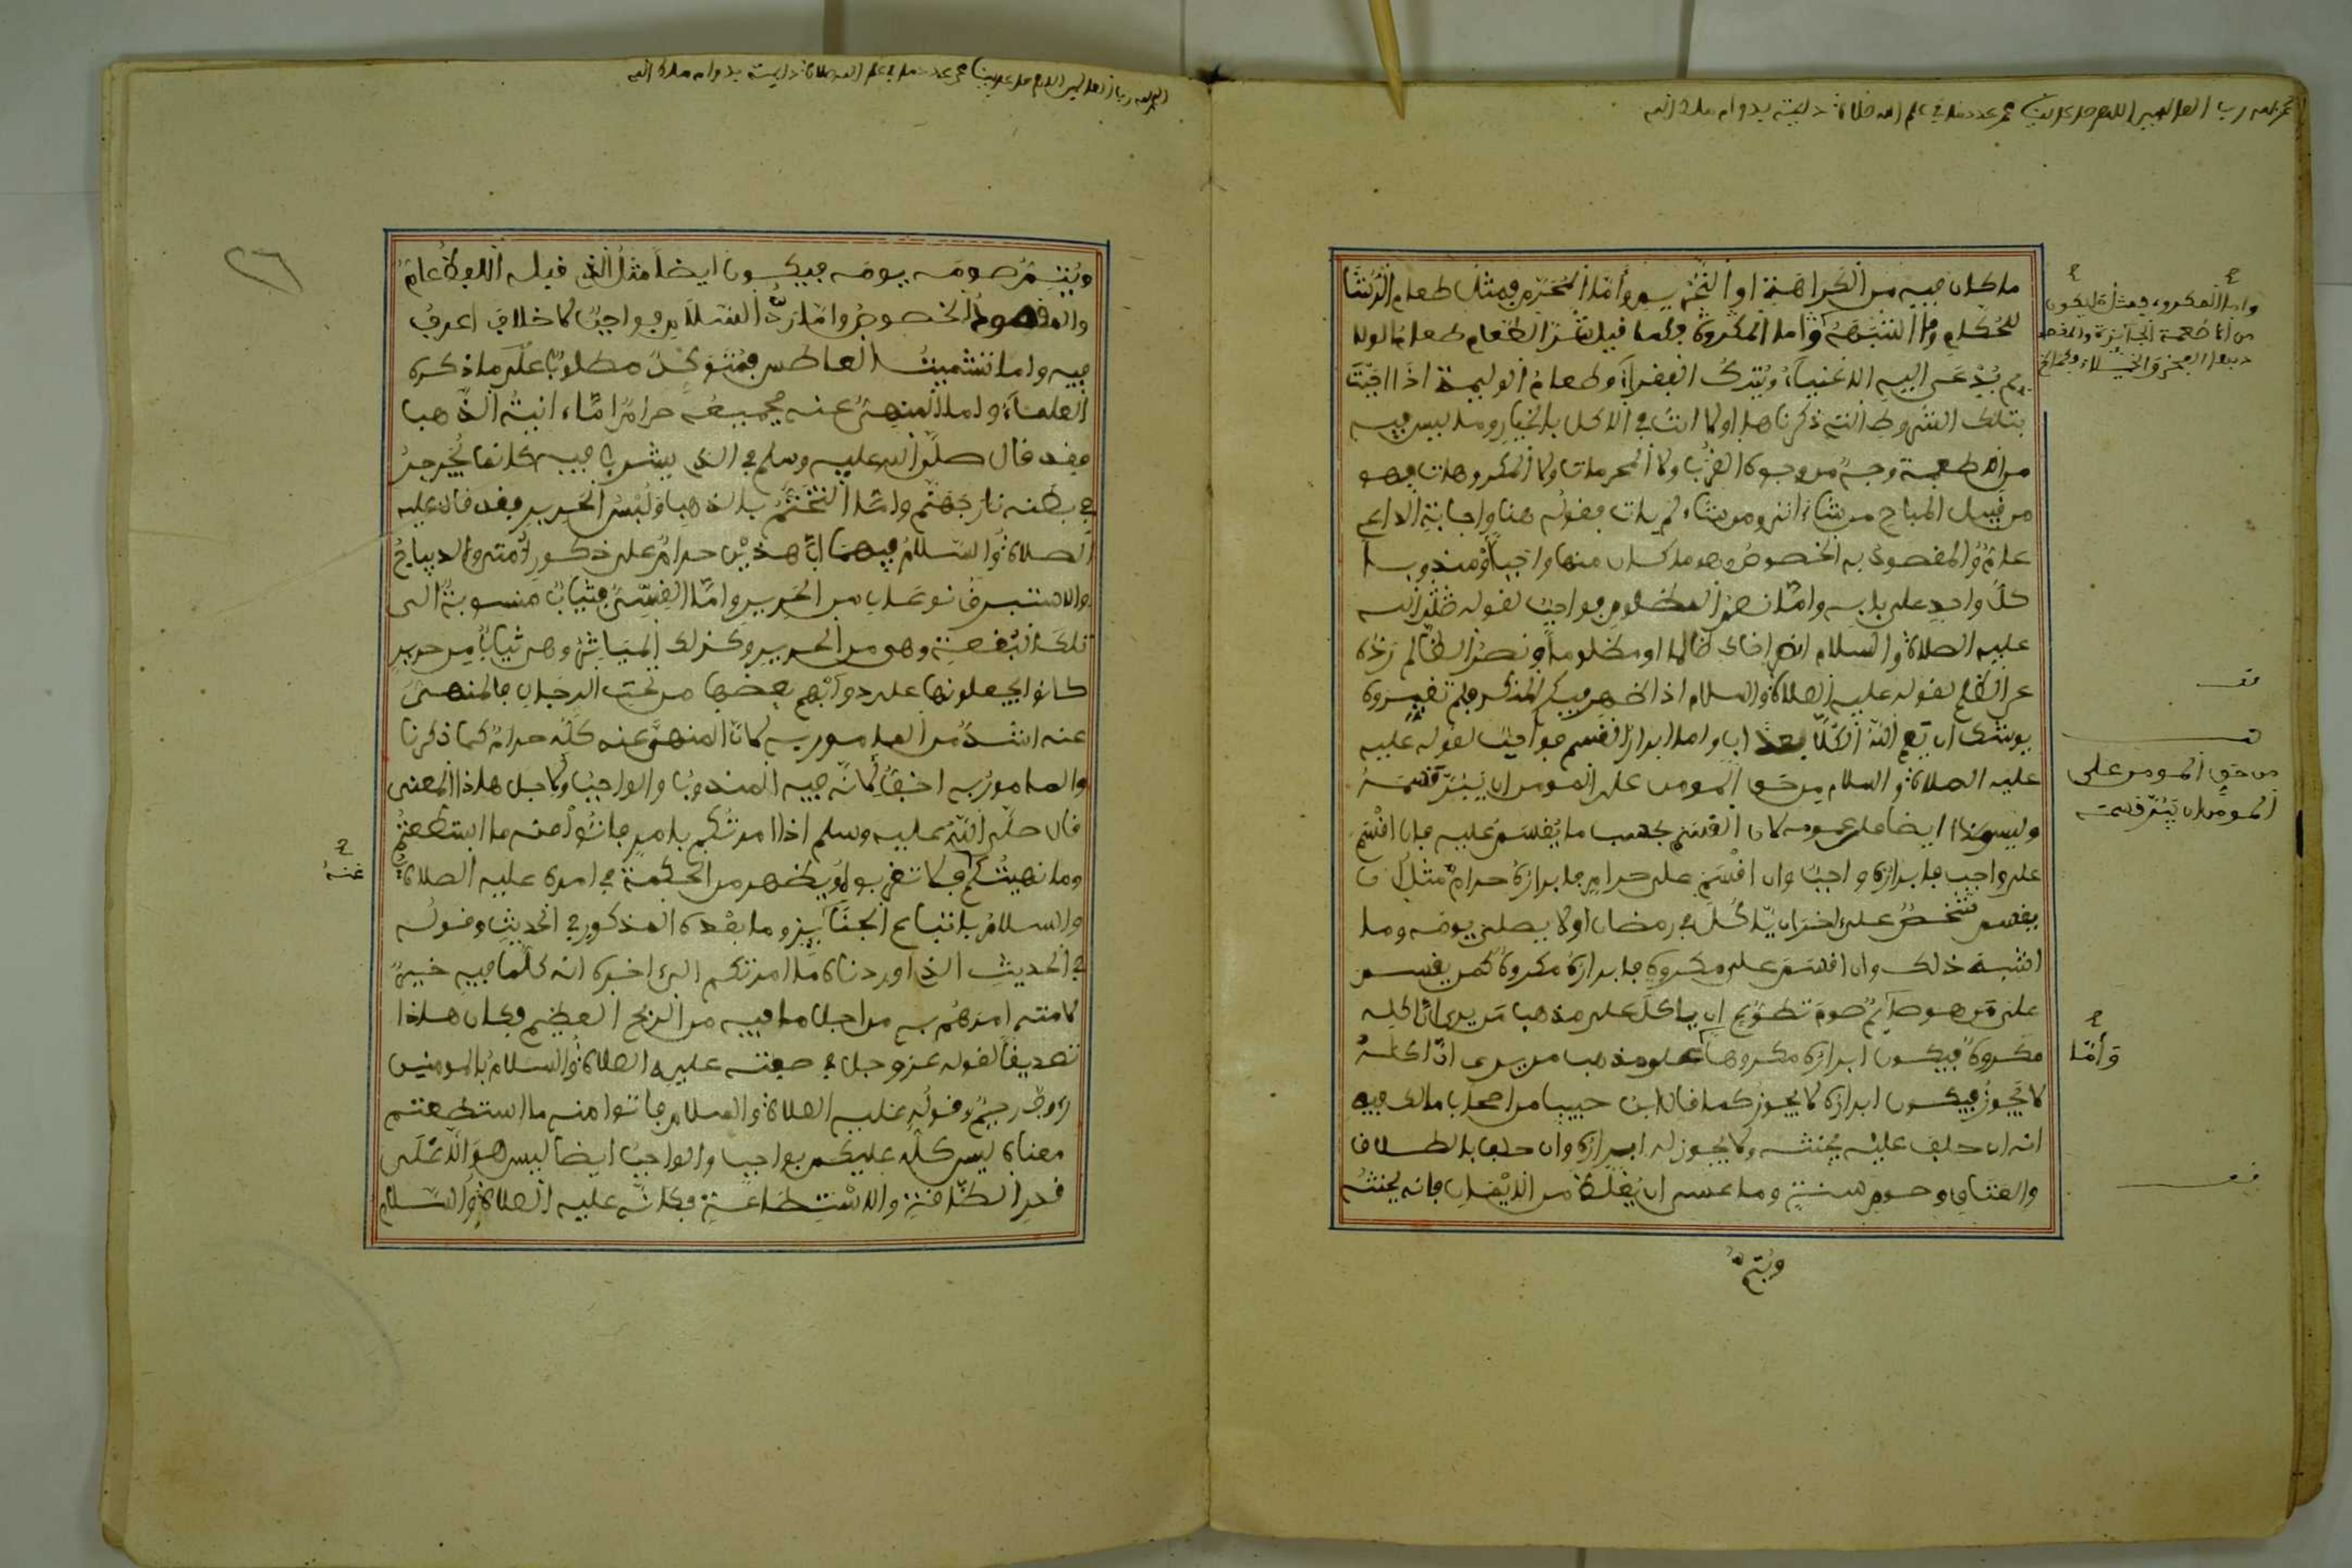 ما كان فيه من الكراهة او التحريم وأما المحرم فمثل طعام الرشا
للحكام وما اشبهه وأما المكروه فكما قيل شر الطعام طعام الولا
يم يدعى اليه الاغنياء ويترك الفقراء وطعام الوليمة اذا اتيت
بتلك الشروط التي ذكرناها اولا انت في الاكل بالخيار وما ليس فيه
من الاطعمة وجه من وجوه القرب ولا المحرمات ولا المكروهات فهو
من قبيل المباح من شاء اتى ومن شاء لم يات فقوله هنا واجابة الداعي
عام والمقصود به الخصوص وهو ما كان منها واجبا او مندوبا
كل واحد على بابه وأما نصر المظلوم فواجب لقوله
عليه الصلاة والسلام انصر اخاك ظالما او مظلوما ونصر الظالم رده
عن الظلم لقوله عليه الصلاة والسلام اذا ظهر فيكم المنكر فلم تغيروه
يوشك ان يعم الله الكل بعذاب واما ابرار القسم فواجب لقوله عليه
عليه الصلاة والسلام من حق المومن على المومن ان يبر قسمه
وليس هذا ايضا على عمومه لان القسم بحسب ما يقسم عليه فان اقسم
على واجب فابراره واجب وان اقسم على حرام فابراره حرام مثل ان
يقسم شخص على اخر ان ياكل في رمضان او لا يصلى يومه وما
اشبه ذلك وان اقسم على مكروه فابراره مكروه كمن يقسم
على من هو صايم صوم تطوع ان ياكل على مذهب من يرى ان اكله
مكروه فيكون ابراره مكروها على مذهب من يرى ان اكله
لا يجوز فيكون ابراره لا يجوز كما قال ابن حبيب من اصحاب مالك فيه
انه ان حلف عليه يحنثه ولا يجوز له ابراره وان حلف بالطلاق
والعتاق وصوم سنة وما عسى ان يغلظ من الايمان فانه يحنثه
ويتم
من حق المومن على
المومن ان يبر قسمه
وأما
ويتم صومه يومه فيكون ايضا مثل الذي قبله اللفظ عام
والمقصود الخصوص واما رد السلام فواجب لا خلاف اعرف
فيه واما تشميت العاطس فمتوكد مطلوب على ما ذكره
العلماء واما المنهى عنه فجميعه حرام اما انية الذهب
فقد قال صلى الله عليه وسلم في الذي يشرب فيه كانما يجرجر
في بطنه نار جهنم واما التختم بالذهب ولبس الحرير فقد قال عليه
الصلاة والسلام فيهما ان هذين حرام على ذكور امتى والديباج
والاستبرق نوعان من الحرير واما القسي فثياب منسوبة الى
تلك البقعة وهى من الحرير وكذلك المياثر وهى ثياب من حرير
كانوا يجعلونها على دوابهم بعضها من تحت الرحال فالمنهى
عنه اشد من المامور به لان المنهى عنه كله حرام كما ذكرنا
والمامور به اخف لانه فيه المندوب والواجب ولاجل هذا المعنى
قال صلى الله عليه وسلم اذا امرتكم بامر فاتوا منه ما استطعتم
وما نهيتكم فلا تقربوا ويظهر من الحكمة في امره عليه الصلاة
عنه
والسلام باتباع الجنايز وما بعده المذكور في الحديث وقوله
في الحديث الذي اوردناه ما امرتكم الذى اخبره انه كلما فيه خير
لامته امرهم به من اجل ما فيه من الربح العظيم فكان هذا
تصديقا لقوله عز وجل في صفته عليه الصلاة والسلام بالمومنين
روف رحيم وقوله عليه الصلاة والسلام فاتوا منه ما استطعتم
معناه ليس كله عليكم بواجب والواجب ايضا ليس هو الا على
قدر الطاقة والاستطاعة فكانه عليه الصلاة والسلام
٢٦